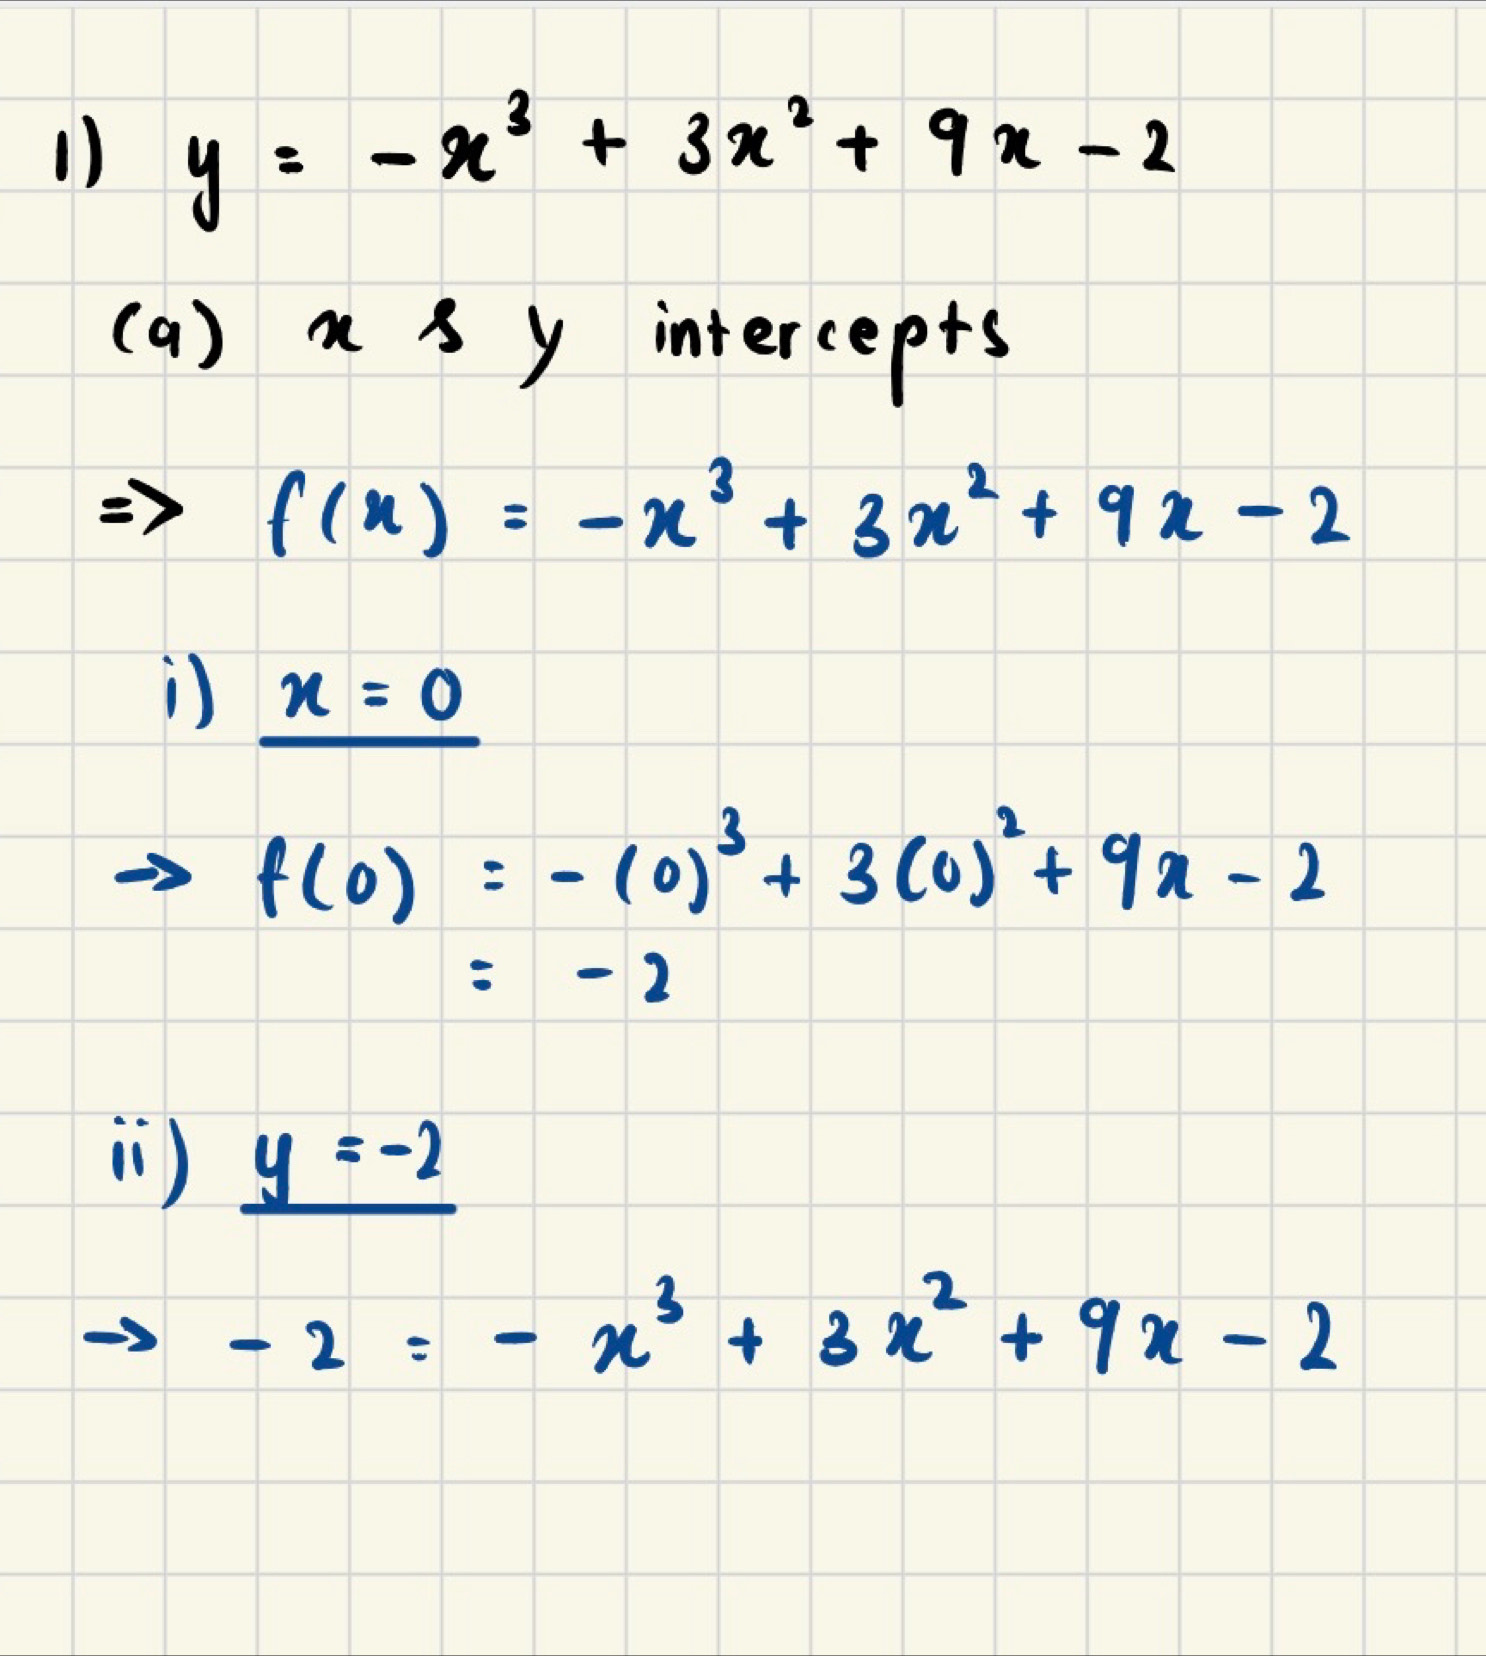 1) y = -x³ + 3x² + 9x - 2
(a) x & y intercepts
=> f(x) = -x³ + 3x² + 9x - 2
i) x = 0
→ f(0) = -(0)³ + 3(0)² + 9x - 2
= -2
ii) y = -2
→ -2 = - x³ + 3x² + 9x - 2